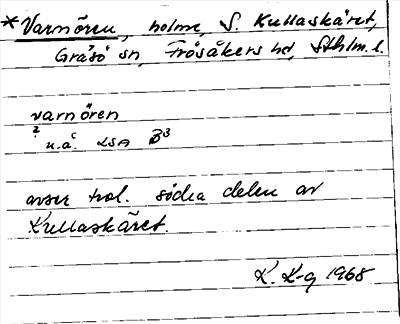 *Varnören, holme, S. Kullaskäret,
Gräsö sn, Frösåkers hd, Sthlm. l.
varnören
? u.å. LSA B3
avser trol. södra delen av
Kullaskäret.
K. K-g 1968